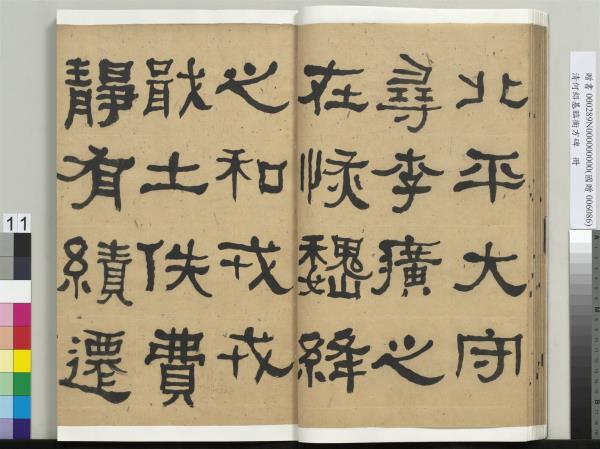 北平大守
尋李廣之
在恢魏絳
之和戎戎
戢士佚費
靜有績遷
贈書 000289N000000000(國贈 006086)
清何紹基臨衡方碑 冊
11
A
M
B